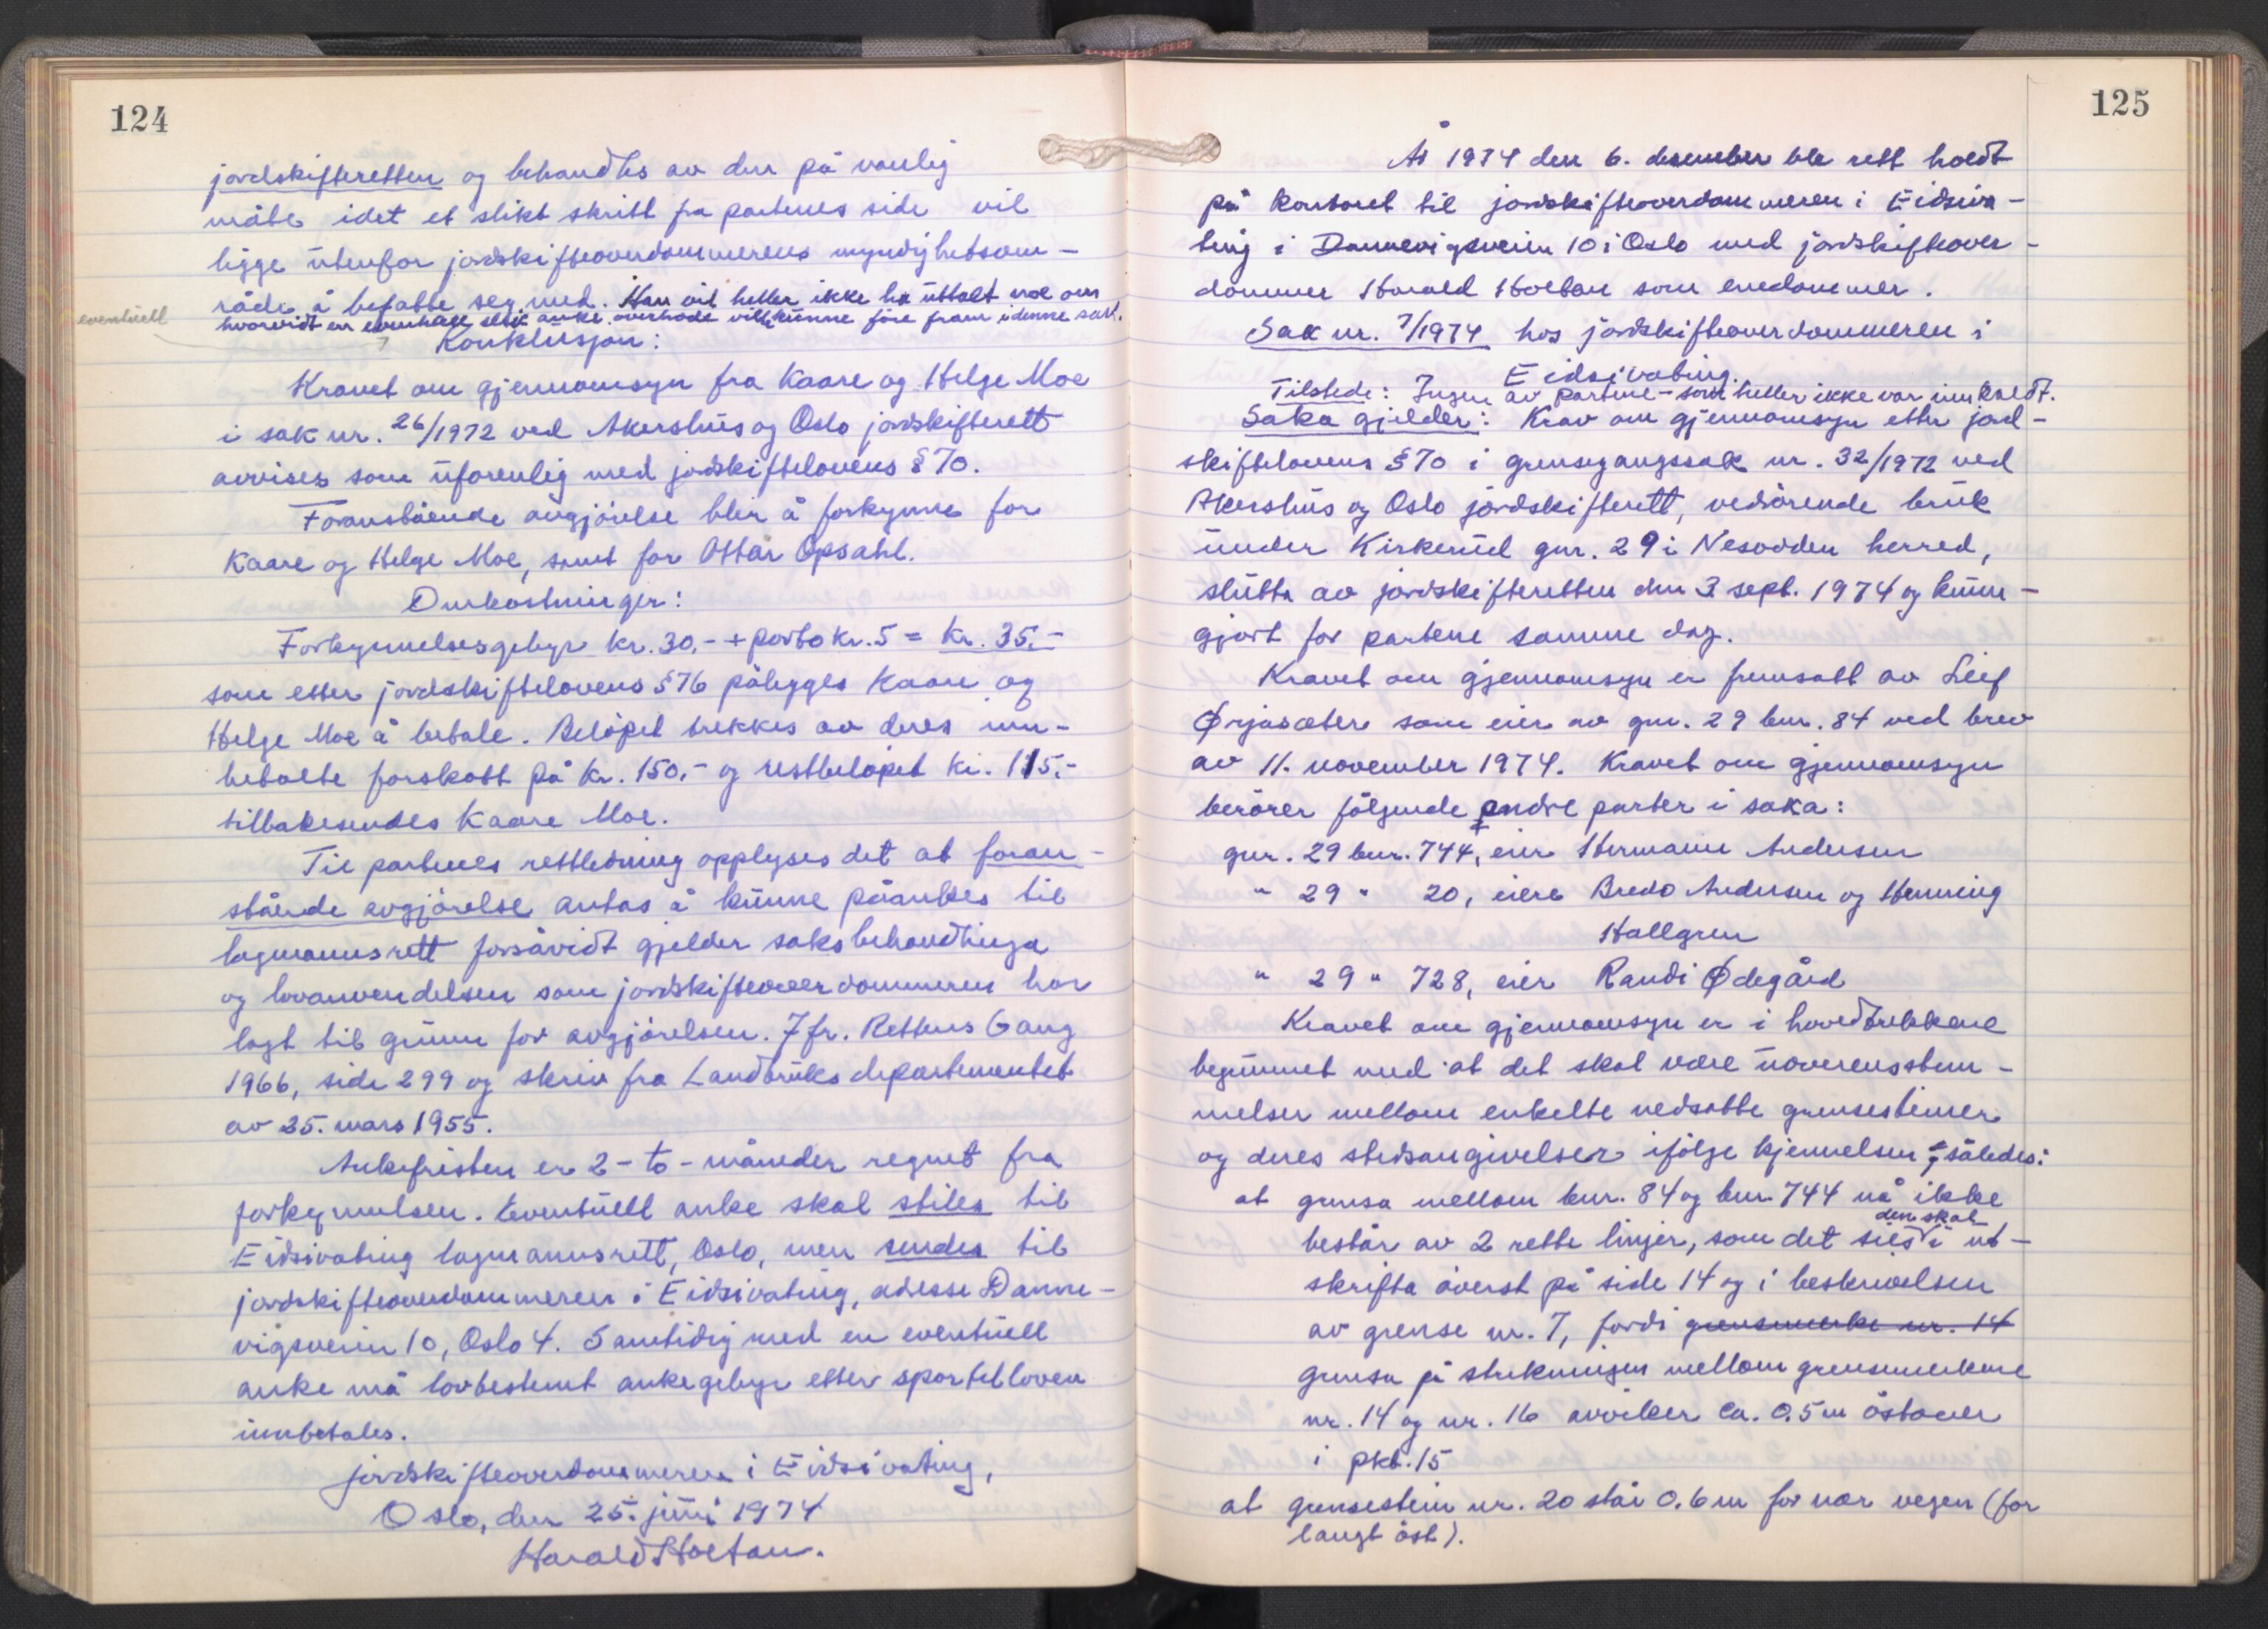 124
jordskifteretten og behandles av den på vanlig
måte idet et slikt skritt fra partenes side vil
ligge utenfor jordskifteoverdommerens myndighetsom-
råde å befatte seg med. Han vil heller ikke ha uttalt noe om
eventuell
hvorvidt en eventuell slik anke overhode ville kunne føre fram i denne sak.
Konklusjon:
Kravet om gjennomsyn fra Kaare og Helge Moe
i sak nr. 26/1972 ved Akershus og Oslo jordskifterett
avvises som uforenlig med jordskiftelovens § 70.
Foranstående avgjörelse blir å forkynne for
Kaare og Helge Moe, samt for Ottar Opsahl.
Omkostninger:
Forkynnelsesgebyr kr. 30,- + porto kr. 5 = kr. 35,-
som etter jordskiftelovens § 76 pålegges Kaare og
Helge Moe å betale. Belöpet trekkes av deres inn-
betalte forskott på kr. 150,- og restbelöpet kr. 115,-
tilbakesendes Kaare Moe.
Til partenes rettledning opplyses det at foran-
stående avgjörelse antas å kunne påankes til
lagmannsrett forsåvidt gjelder saksbehandlinga
og lovanvendelsen som jordskifteoverdommeren har
lagt til grunn for avgjörelsen. Jfr. Rettens Gang
1966, side 299 og skriv fra Landbruksdepartementet
av 25. mars 1955.
Ankefristen er 2 - to - måneder regnet fra
forkynnelsen. Eventuell anke skal stiles til
Eidsivating lagmannsrett, Oslo, men sendes til
jordskifteoverdommeren i Eidsivating, adresse Danne-
vigsveien 10, Oslo 4. Samtidig med en eventuell
anke må lovbestemt ankegebyr etter sportelloven
innbetales.
Jordskifteoverdommeren i Eidsivating,
Oslo, den 25. juni 1974
Harald Holtan.
125
År 1974 den 6. desember ble rett holdt
på kontoret til jordskifteoverdommeren i Eidsiva-
ting i Dannevigsveien 10 i Oslo med jordskifteover-
dommer Harald Holtan som enedommer.
Sak nr. 7/1974 hos jordskifteoverdommeren i
Eidsivating.
Tilstede: Ingen av partene - som heller ikke var innkaldt.
Saka gjelder: Krav om gjennomsyn etter jord-
skiftelovens § 70 i grensegangssak nr. 32/1972 ved
Akershus og Oslo jordskifterett, vedrörende bruk
under Kirkerud gnr. 29 i Nesodden herred,
slutta av jordskifteretten den 3 sept. 1974 og kunn-
gjort for partene samme dag.
Kravet om gjennomsyn er fremsatt av Leif
Ørjasæter som eier av gnr. 29 bnr. 84 ved brev
av 11. november 1974. Kravet om gjennomsyn
berörer fölgende andre parter i saka:
gnr. 29 bnr. 744, eier Hermann Andersen
" 29 " 20, eiere Bredo Andersen og Henning
Hallgren
" 29 " 728, eier Randi Ødegård
Kravet om gjennomsyn er i hovedtrekkene
begrunnet med at det skal være uoverensstem-
melser mellom enkelte nedsatte grensesteiner
og deres stedsangivelser ifölge kjennelsen, således:
at grensa mellom bnr. 84 og bnr. 744 nå ikke
den skal
består av 2 rette linjer, som det sies i ut-
skrifta överst på side 14 og i beskrivelsen
av grense nr. 7, fordi grensemerke nr. 14
grensa på strekningen mellom grensemerkene
nr. 14 og nr. 16 avviker ca. 0,5 m östover
i pkt. 15
at grensestein nr. 20 står 0,6 m for nær vegen (for
langt öst).